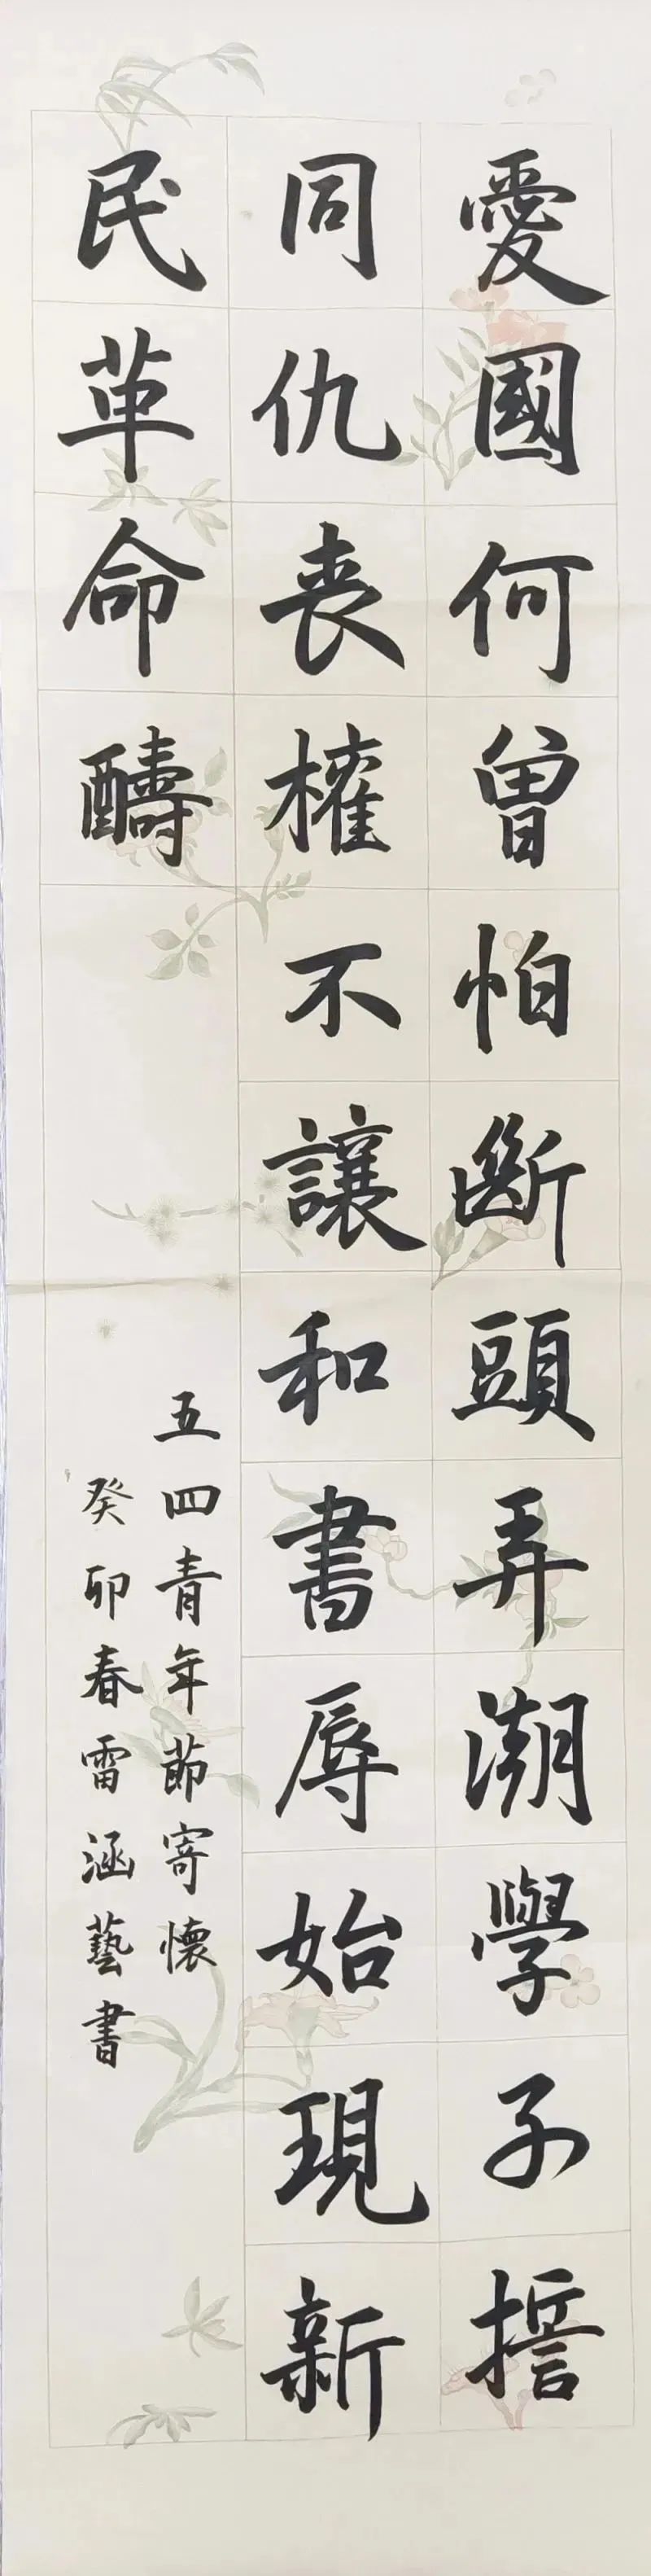 愛國何曾怕斷頭弄潮學子誓
同仇喪權不讓和書辱始現新
民革命醻
五四青年節寄懷
癸卯春雷涵藝書